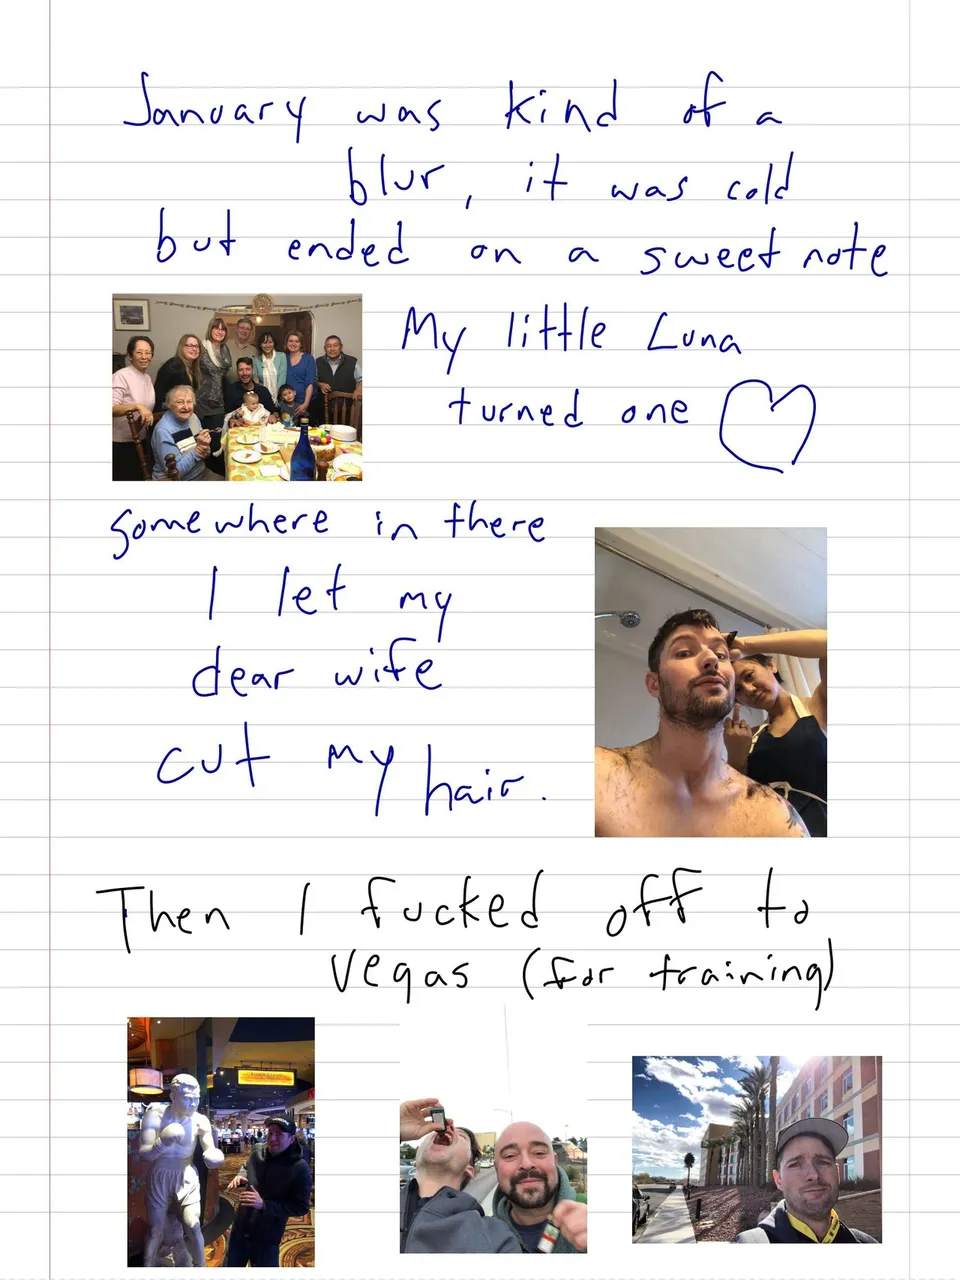 January was kind of a
blur, it was cold
but ended on a sweet note
My little Luna
turned one
somewhere in there
I let my
dear wife
cut my hair.
Then I fucked off to
vegas (for training)